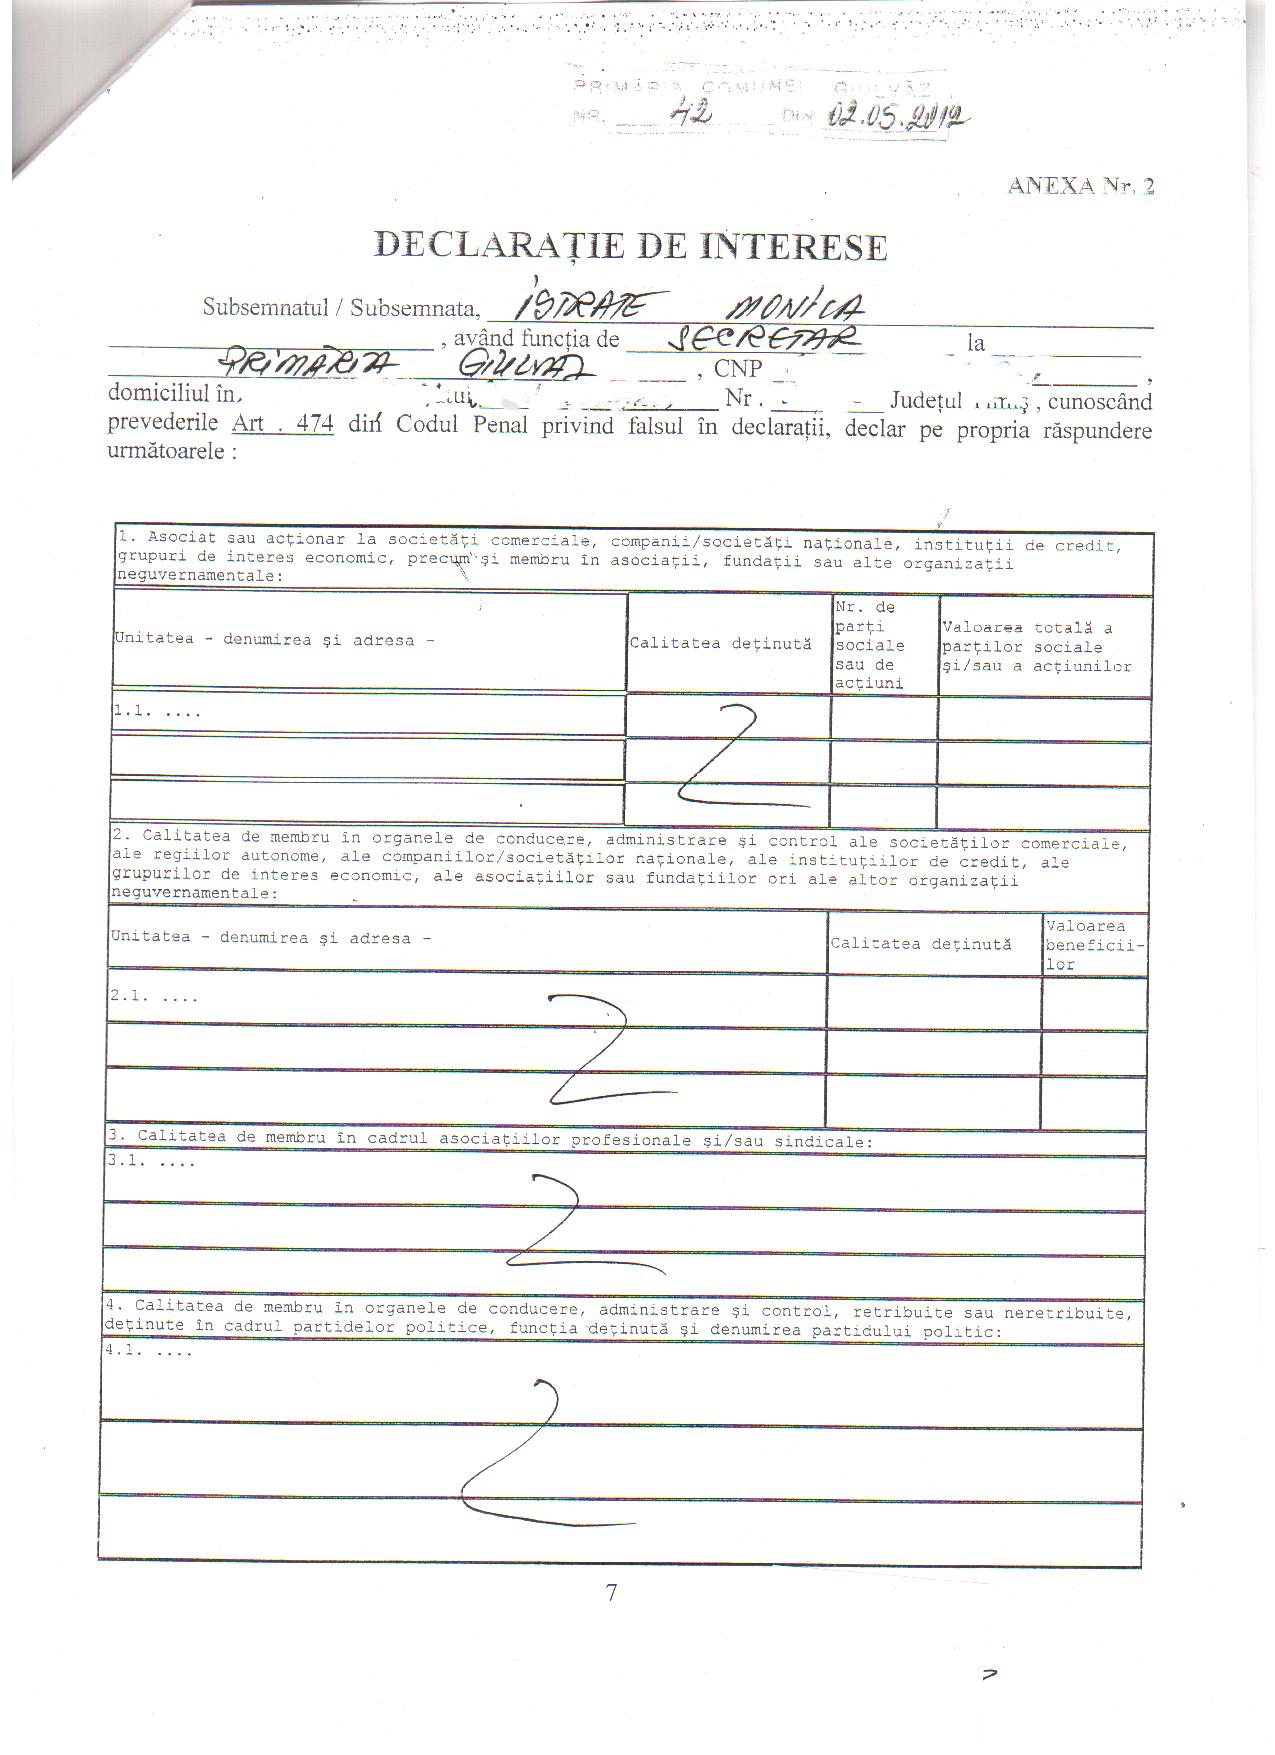 PRIMĂRIA COMUNEI GIULVĂZ
NR. 42 DIN 02.05.2012
ANEXA Nr. 2
DECLARAŢIE DE INTERESE
Subsemnatul / Subsemnata, ISTRATE MONICA
, având funcţia de SECRETAR la
PRIMĂRIA GIULVAZ , CNP ,
domiciliul în Nr . Judeţul Timiş , cunoscând
prevederile Art . 474 din Codul Penal privind falsul în declaraţii, declar pe propria răspundere
următoarele :
1. Asociat sau acţionar la societăţi comerciale, companii/societăţi naţionale, instituţii de credit,
grupuri de interes economic, precum şi membru în asociaţii, fundaţii sau alte organizaţii
neguvernamentale:
Unitatea - denumirea şi adresa -
Calitatea deţinută
Nr. de
parţi
sociale
sau de
acţiuni
Valoarea totală a
parţilor sociale
şi/sau a acţiunilor
1.1. ....
2. Calitatea de membru în organele de conducere, administrare şi control ale societăţilor comerciale,
ale regiilor autonome, ale companiilor/societăţilor naţionale, ale instituţiilor de credit, ale
grupurilor de interes economic, ale asociaţiilor sau fundaţiilor ori ale altor organizaţii
neguvernamentale:
Unitatea - denumirea şi adresa -
Calitatea deţinută
Valoarea
beneficii-
lor
2.1. ....
3. Calitatea de membru în cadrul asociaţiilor profesionale şi/sau sindicale:
3.1. ....
4. Calitatea de membru în organele de conducere, administrare şi control, retribuite sau neretribuite,
deţinute în cadrul partidelor politice, funcţia deţinută şi denumirea partidului politic:
4.1. ....
7